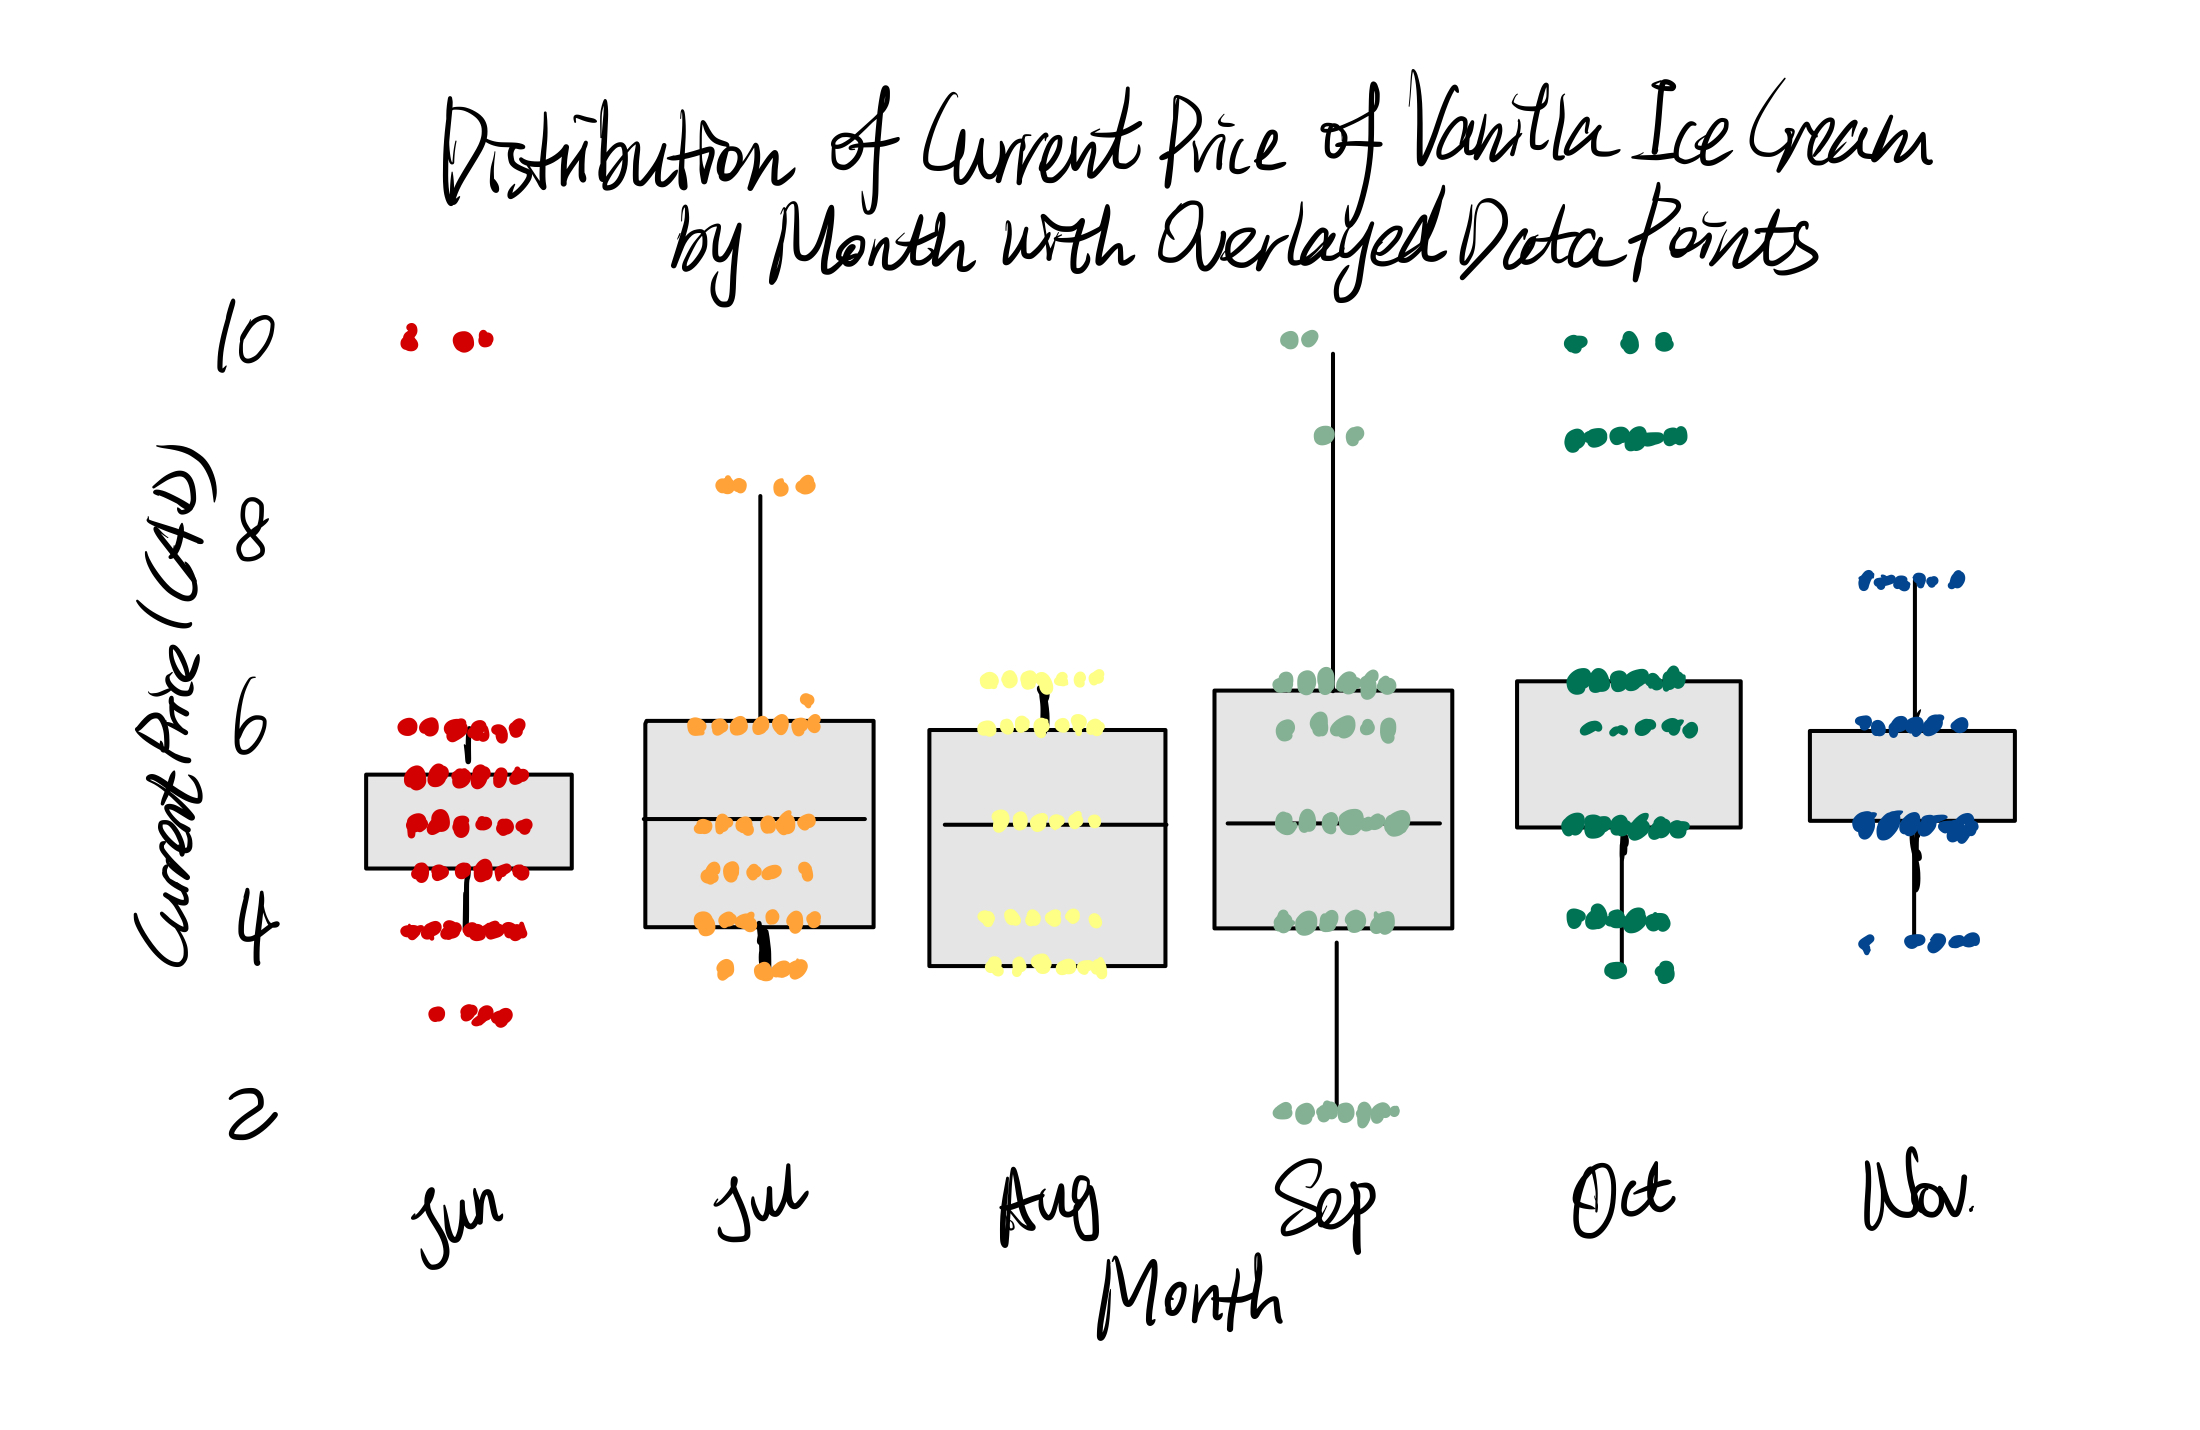 Distribution of Current Price of Vanilla Ice Cream
by Month with Overlayed Data Points
10
8
6
4
2
Current Price (CAD)
Jun Jul Aug Sep Oct Nov.
Month